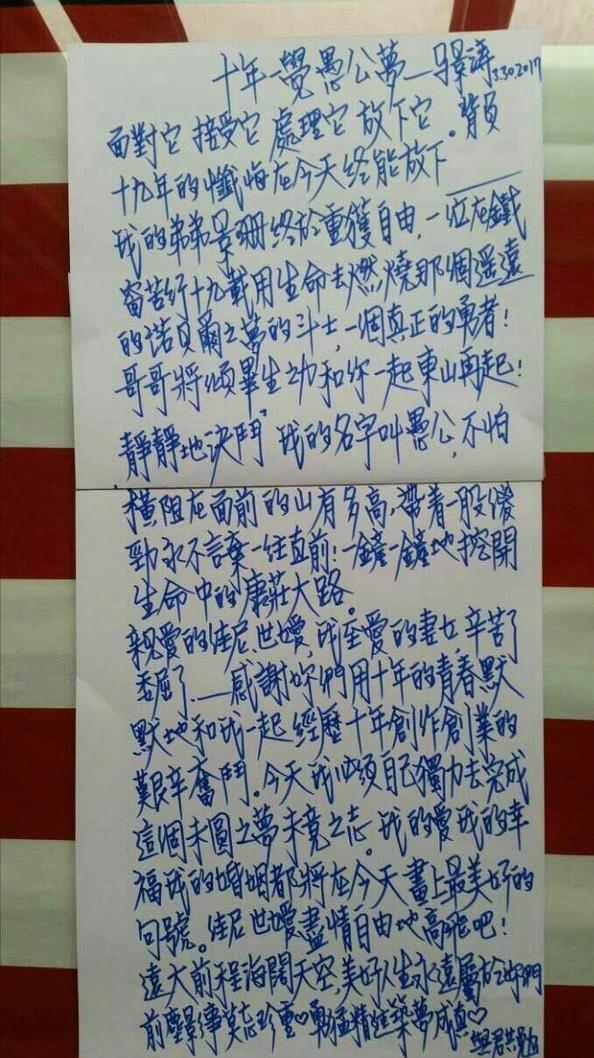 十年一覺愚公夢—馬景濤 3.30.2017
面對它 接受它 處理它 放下它。背負
十九年的懺悔在今天終能放下——
我的弟弟景珊終於重獲自由,一位在鐵
窗苦行十九載用生命去燃燒那個遥遠
的诺貝爾之夢的斗士,一個真正的勇者!
哥哥將傾畢生之力和你一起東山再起!
靜靜地決鬥,我的名字叫愚公,不怕
橫阻在面前的山有多高,帶着一股傻
勁永不言棄一往直前!一鏟一鏟地挖開
生命中的康莊大路。
親愛的佳尼、世嬡,我至愛的妻女,辛苦了
委屈了——感謝妳們用十年的青春默
默地和我一起經歷十年創作創業的
艱辛奮鬥。今天我必須自己獨力去完成
這個未圓之夢未竟之志。我的愛我的幸
福我的婚姻都將在今天畫上最美好的
句號。佳尼世嬡盡情自由地高飛吧!
遠大前程海闊天空,美好人生永遠屬於妳們
前塵影事莫忘珍重♡勇猛精進築夢成真♡
與君共勉